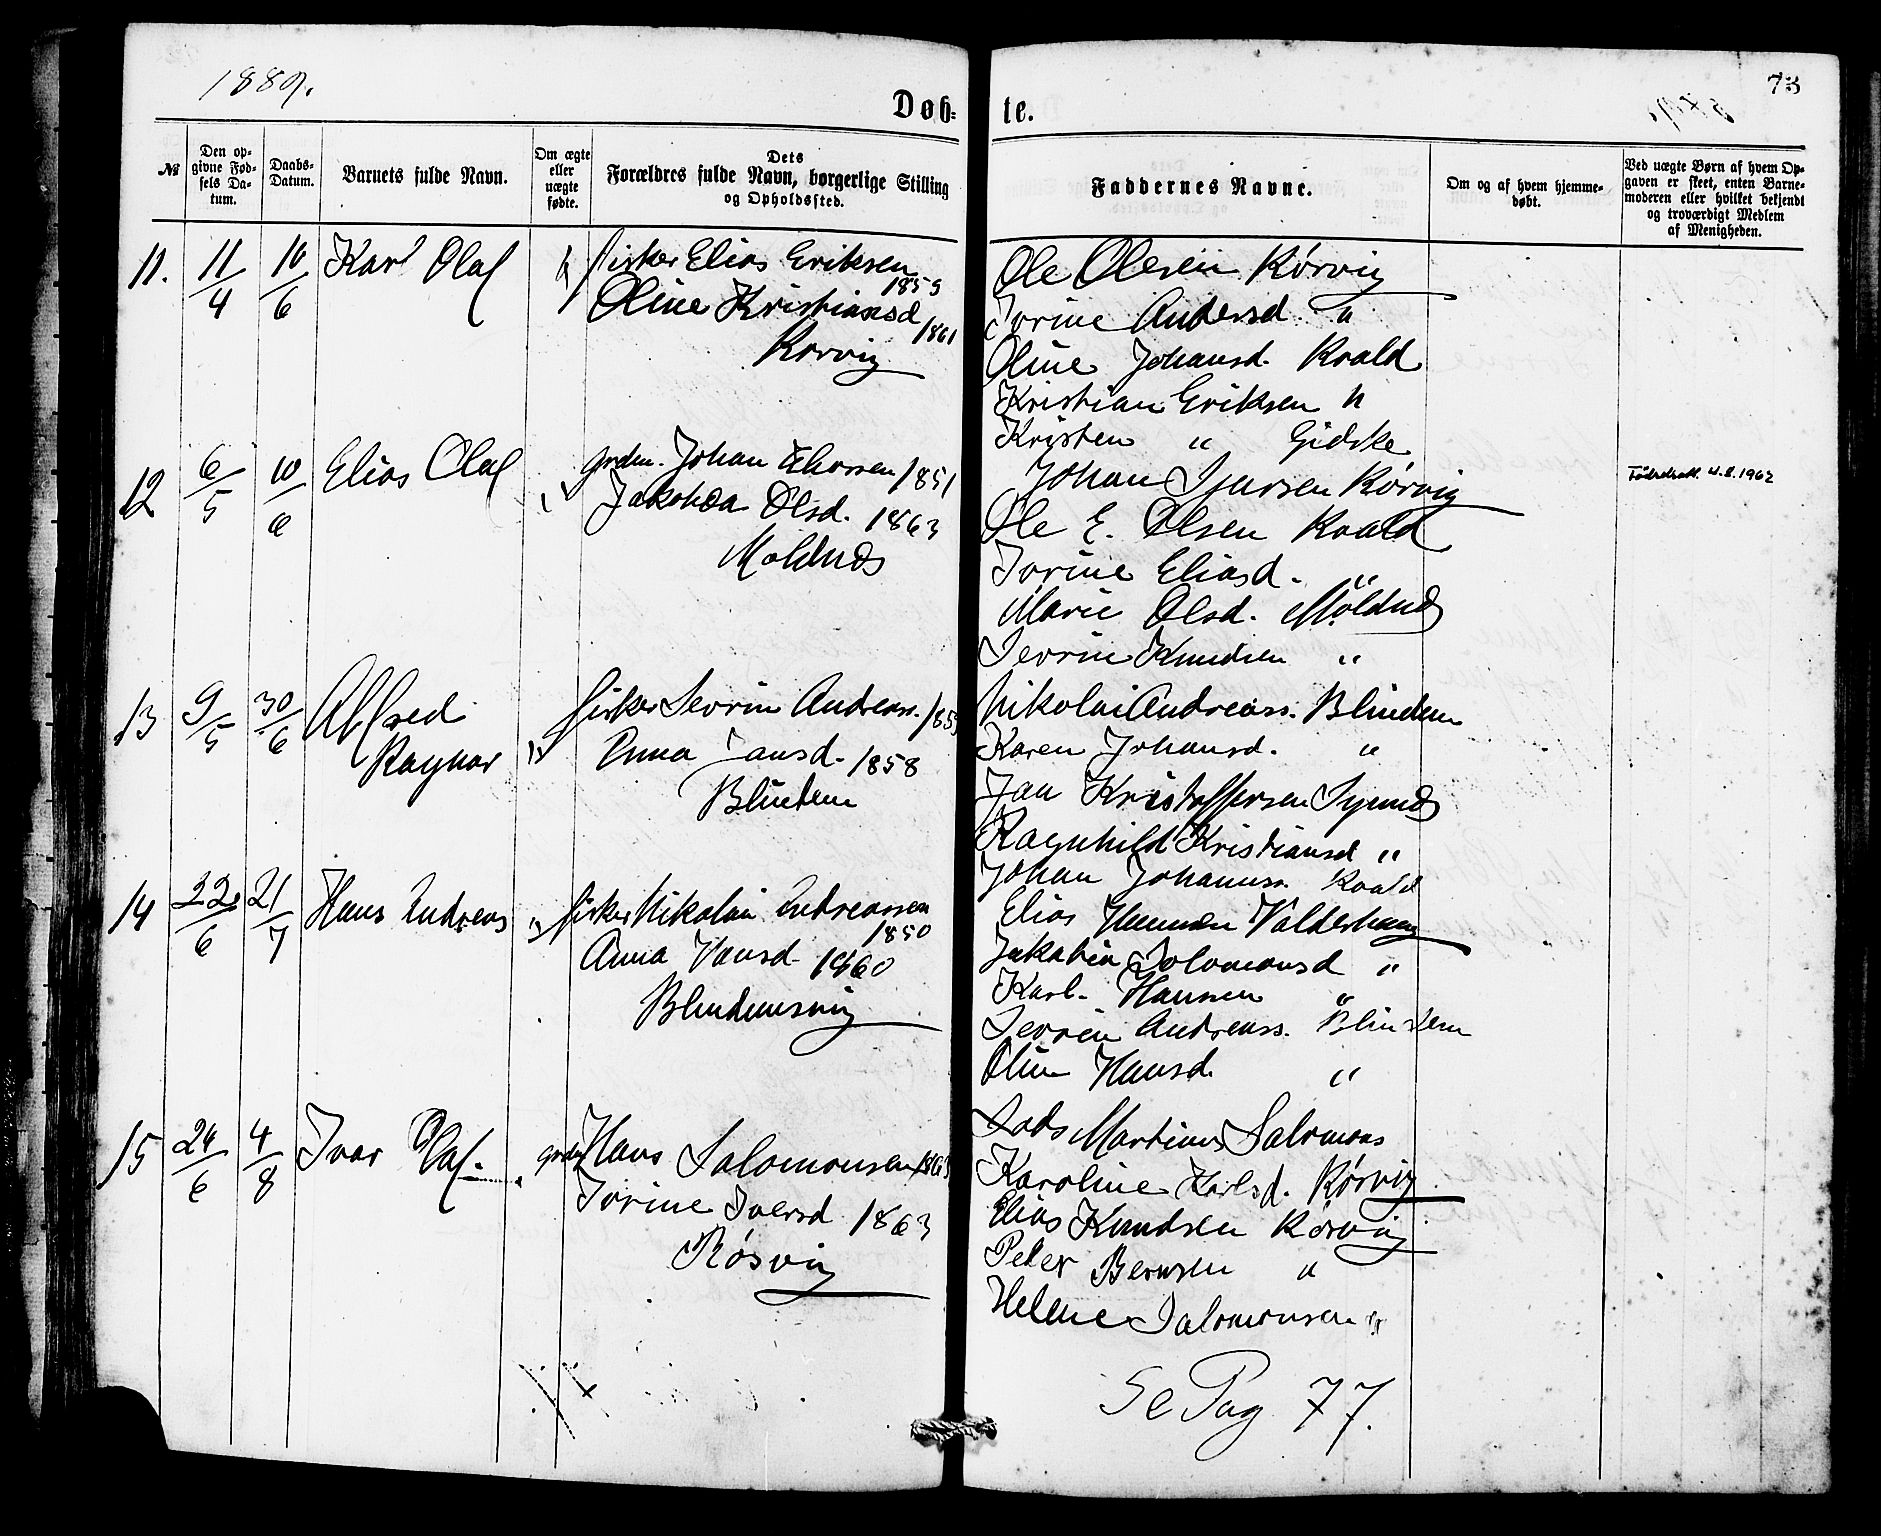 1889.
73
Døb-
te.
№
Den op-
givne Fød-
sels Da-
tum.
Daabs-
Datum.
Barnets fulde Navn.
Om ægte
eller
uægte
fødte.
Dets
Forældres fulde Navn, borgerlige Stilling
og Opholdssted.
Faddernes Navne.
Om og af hvem hjemme-
døbt.
Ved uægte Børn af hvem Op-
gaven er skeet, enten Barne-
moderen eller hvilket bekjendt
og troværdigt Medlem
af Menigheden.
11. 11/4 10/6 Karl Olaf
fisker Elias Eriksen
1859
Oline Kristiansd
1861
Rørvig
Ole Olesen Rørvig
Jorine Andersd "
Oline Johansd. Roald
Kristian Eriksen "
Kristen " Gidske
12 6/5 10/6 Elias Olaf
grdm. Johan 1851
Jakobea Olsd. 1863
Moldnæs
Johan Rørvig
Ole E. Olsen Roald
Jorine Eliasd. "
Marie Olsd. Moldnæs
Severin Knudsen "
Fødselsatt. 1962
13 9/5 30/6 Alfred
Ragnar
fisker Severin Andreass. 1859
Anna Jansd. 1858
Blindem
Nikolai Andreass. Blindem
Karen Johansd. "
Jan Kristoffersen Synnes
Ragnhild Kristiansd "
Johan Johannss. Roald
14 22/6 21/7 Hans Andreas
fisker Nikolai Andreassen
1850
Anna Hansd. 1860
Blindemsvig
Elias Hansen Valderhaug
Jakobia Solomonsd "
Karl Hansen "
Severin Andreass. Blindem
Olin Hansd. "
15 24/6 4/8 Ivar Olaf.
grdm Hans Salomonsen
Jorine Iversd 1863
Røsvig
Lads Martinus Salomons
Karoline Karlsd. Rørvig
Elias Knudsen Rørvig
Peter Berntsen "
Helene Salomonsen "
Se Pag 77.